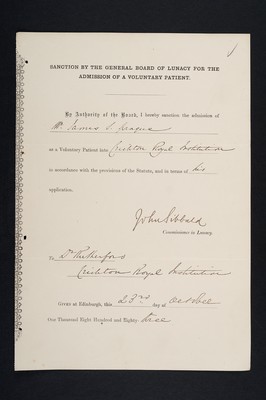 SANCTION BY THE GENERAL BOARD OF LUNACY FOR THE
ADMISSION OF A VOLUNTARY PATIENT.
By Authority of the Board, I hereby sanction the admission of
Mr. Thomas S.
as a Voluntary Patient into Crichton Royal Institution
in accordance with the provision of the Statute, and in terms of his
application.
John Sibbald
Commissioner in Lunacy.
To Dr Rutherford
Crichton Royal Institution
Given at Edinburgh, this 23rd day of October
One Thousand Eight Hundred and Eighty-three